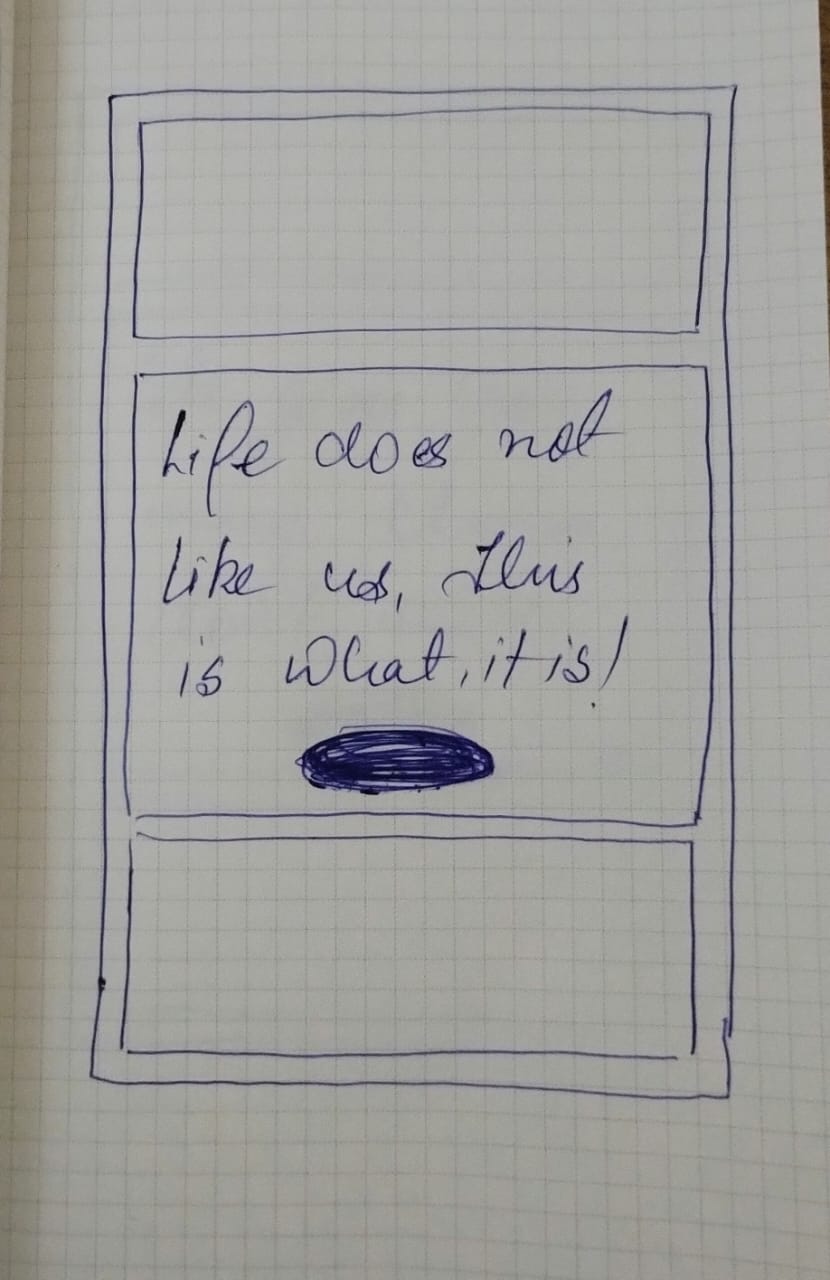 Life does not
like us, This
is what, it is!